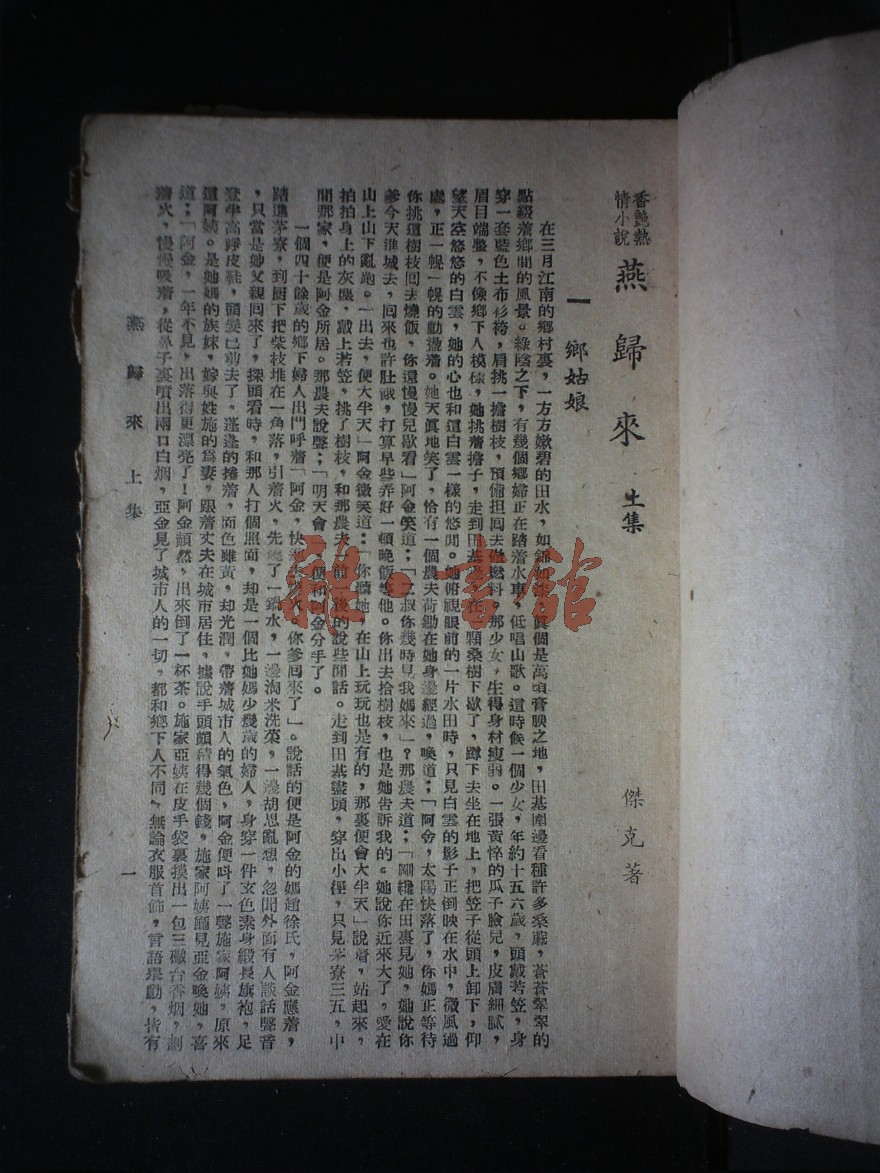 香艷熱
情小說
燕歸來 上集
傑克著
一 鄉姑娘
在三月江南的鄉村裏，一方方嫩碧的田水，如 個是萬頃膏腴之地，田基圍邊看種許多桑蔴，蒼蒼翠翠的
點綴着鄉間的風景。綠陰之下，有幾個鄉婦正在踏着水車，低唱山歌。這時候一個少女，年約十五六歲，頭戴若笠，身
穿一套藍色土布衫袴，肩挑一擔樹枝，預備担囘去做燃料。那少女，生得身材瘦弱。一張黃悴的瓜子臉兒，皮膚細膩，
眉目端整，不像鄉下人模樣，她挑着擔子，走到田基 在 顆桑樹下歇了，蹲下去坐在地上，把笠子從頭上卸下，仰
望天空悠悠的白雲，她的心也和這白雲一樣的悠閒。她俯視眼前的一片水田時，只見白雲的影子正倒映在水中，微風過
處，正一幌一幌的動盪着。她天眞地笑了，恰有一個農夫荷鋤在她身邊經過，喚道；「阿金，太陽快落了，你媽正等待
你挑這樹枝囘去燒飯，你還慢慢兒歇看」阿金笑道；「三叔你幾時見我媽來」？那農夫道；「剛纔在田裏見她，她說你
爹今天進城去，囘來也許肚餓，打算早些弄好一頓晚飯等他。你出去拾樹枝，也是她告訴我的。她說你近來大了，愛在
山上山下亂跑。一出去，便大半天」阿金微笑道；「你聽她，在山上玩玩也是有的，那裏便會大半天」說着，站起來，
拍拍身上的灰塵，戴上若笠，挑了樹枝，和那農夫一前一後的說些閒話。走到田基盡頭，穿出小徑，只見茅寮三五，中
間那家，便是阿金所居。那農夫說聲；「明天會」便和阿金分手了。
一個四十餘歲的鄉下婦人出門呼着「阿金，快 火。你爹囘來了」。說話的便是阿金的媽趙徐氏，阿金應着，
踏進茅寮，到厨下把柴枝堆在一角落，引着火，先 了一鍋水，一邊淘米洗菜，一邊胡思亂想，忽聞外面有人談話聲音
，只當是她父親囘來了，探頭看時，和那人打個照面，却是一個比她媽少幾歲的婦人，身穿一件玄色素身緞長旗袍，足
登半高踭皮鞋，頭髮已剪去了，蓬蓬的捲着，面色雖黃，却光潤，帶着城市人的氣色，阿金便呌了一聲施家阿姨，原來
這阿姨。是她媽的族妹，嫁與姓施的爲妻，跟着丈夫在城市居住，據說手頭頗積得幾個錢，施家阿姨 見亞金喚她，喜
道；「阿金，一年不見，出落得更漂亮了！阿金 然，出來倒了一杯茶。施家亞姨在皮手袋裏摸出一包三礮台香烟，劃
着火，慢慢吸着，從鼻子裏噴出兩口白烟，亞金見了城市人的一切，都和鄉下人不同，無論衣服首飾，言語舉動，皆有
燕歸來上集 一
雜·書館